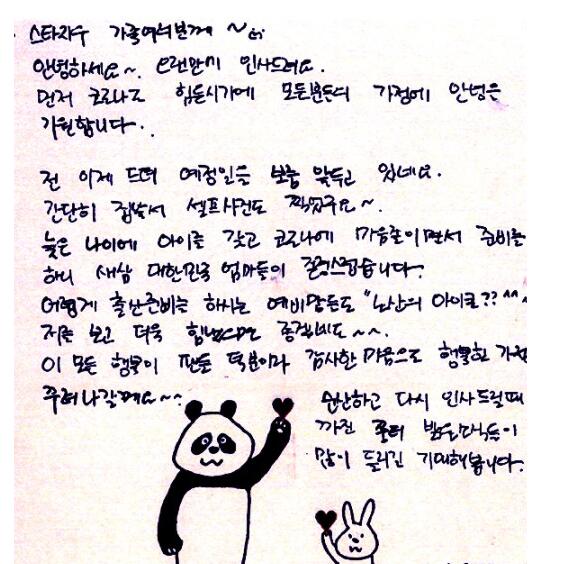 스타자수 가족여러분께 ~
안녕하세요~. 오랜만에 인사드려요.
먼저 코로나로 힘든시기에 모든분들의 가정에 안녕을
기원합니다.
전 이제 드뎌 예정일을 보름 앞두고 있네요.
간단히 집에서 셀프사진도 찍었구요~.
늦은 나이에 아이를 갖고 코로나에 마음졸이면서 준비를
하니 새삼 대한민국 엄마들이 존경스럽습니다.
어렵게 출산준비를 하시는 예비맘들도 "노산의 아이콘?? ^^
저를 보고 더욱 힘냈으면 좋겠네요~~.
이 모든 행복이 팬들 덕분이라 감사한 마음으로 행복한 가정
꾸려나갈께요~~
순산하고 다시 인사드릴때
까진 좀더 밝은소식들이
많이 들리길 기대해봅니다.